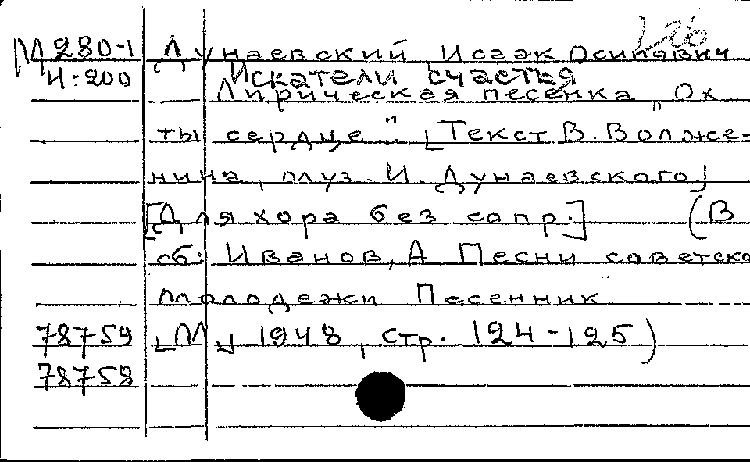 М 280-1 Дунаевский Исаак Осипович
4:200 Искатели счастья
Лирическая песенка „Ох
ты сердце" [Текст В. Волже-
нина, муз. И. Дунаевского]
[Для хора без сопр.] (В
сб: Иванов, А Песни советско
молодежи Песенник
78759 [М] 1948, стр. 124-125)
78758